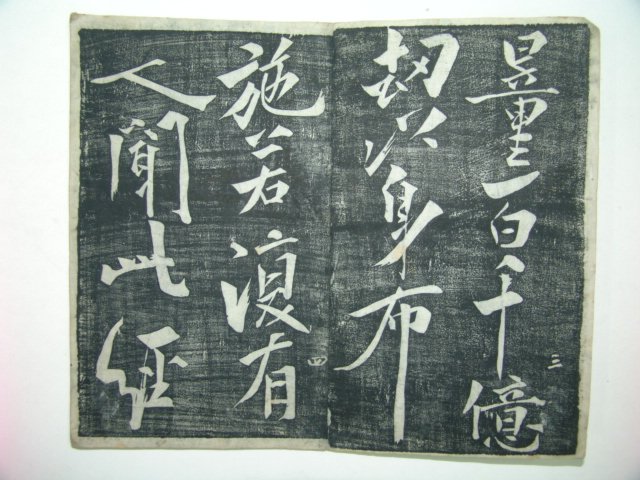 量百千億
三
劫以身布
施若復有
四
人聞此經